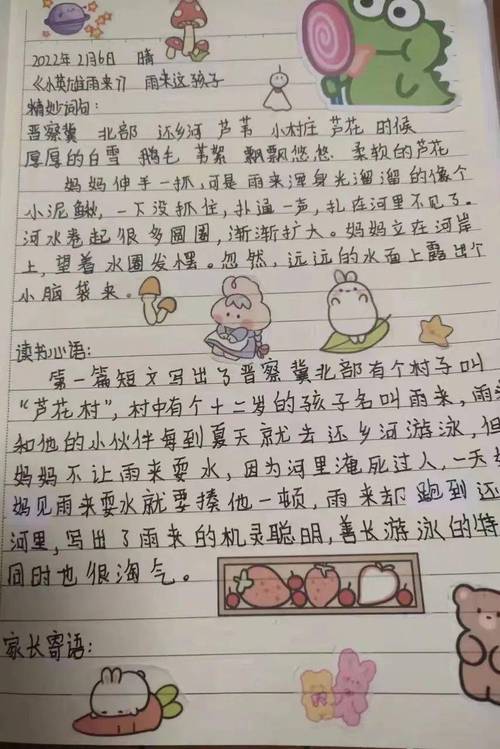 2022年2月6日 晴
《小英雄雨来1》 雨来这孩子
精妙词句:
晋察冀 北部 还乡河 芦苇 小村庄 芦花 时候
厚厚的白雪 鹅毛 苇絮 飘飘悠悠 柔软的芦花
妈妈伸手一抓,可是雨来浑身光溜溜的像个
小泥鳅,一下没抓住,扑通一声,扎在河里不见了。
河水卷起很多圆圈,渐渐扩大。妈妈立在河岸
上,望着水圈发愣。忽然,远远的水面上露出个
小脑袋来。
读书心语:
第一篇短文写出了晋察冀北部有个村子叫
“芦花村”,村中有个十二岁的孩子名叫雨来,雨
和他的小伙伴每到夏天就去还乡河游泳,但
妈妈不让雨来耍水,因为河里淹死过人,一天
妈见雨来耍水就要揍他一顿,雨来却跑到还
河里,写出了雨来的机灵聪明,善长游泳的特
同时也很淘气。
家长寄语: